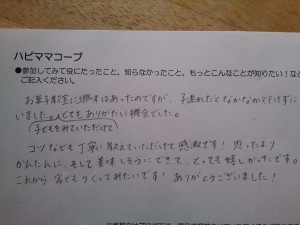 ハピママコープ
●参加してみて役にたったこと、知らなかったこと、もっとこんなことが知りたい!など
ご記入ください。
お菓子教室に興味はあったのですが、子連れだとなかなか行けずに
いました。とてもありがたい機会でした。
(子どもをみていただけて)
コツなども丁寧に教えていただけて感激です! 思ったより
かんたんに、そして美味しそうにできて、とっても嬉しかったです。
これから家でもつくってみたいです! ありがとうございました!